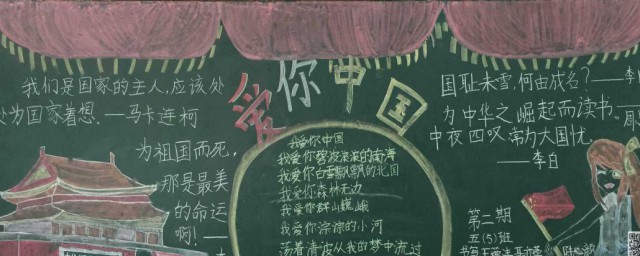 爱你中国
我们是国家的主人,应该处
处为国家着想.—马卡连柯
为祖国而死,
那是最美
的命运
啊!—
我爱你中国
我爱你碧波滚滚的南海
我爱你白雪飘飘的北国
我爱你森林无边
我爱你群山巍峨
我爱你淙淙的小河
荡着清波从我的梦中流过
国耻未雪,何由成名?—李
为中华之崛起而读书.—周
中夜四叹,常为大国忧.
—李白
第二期
五(5)班